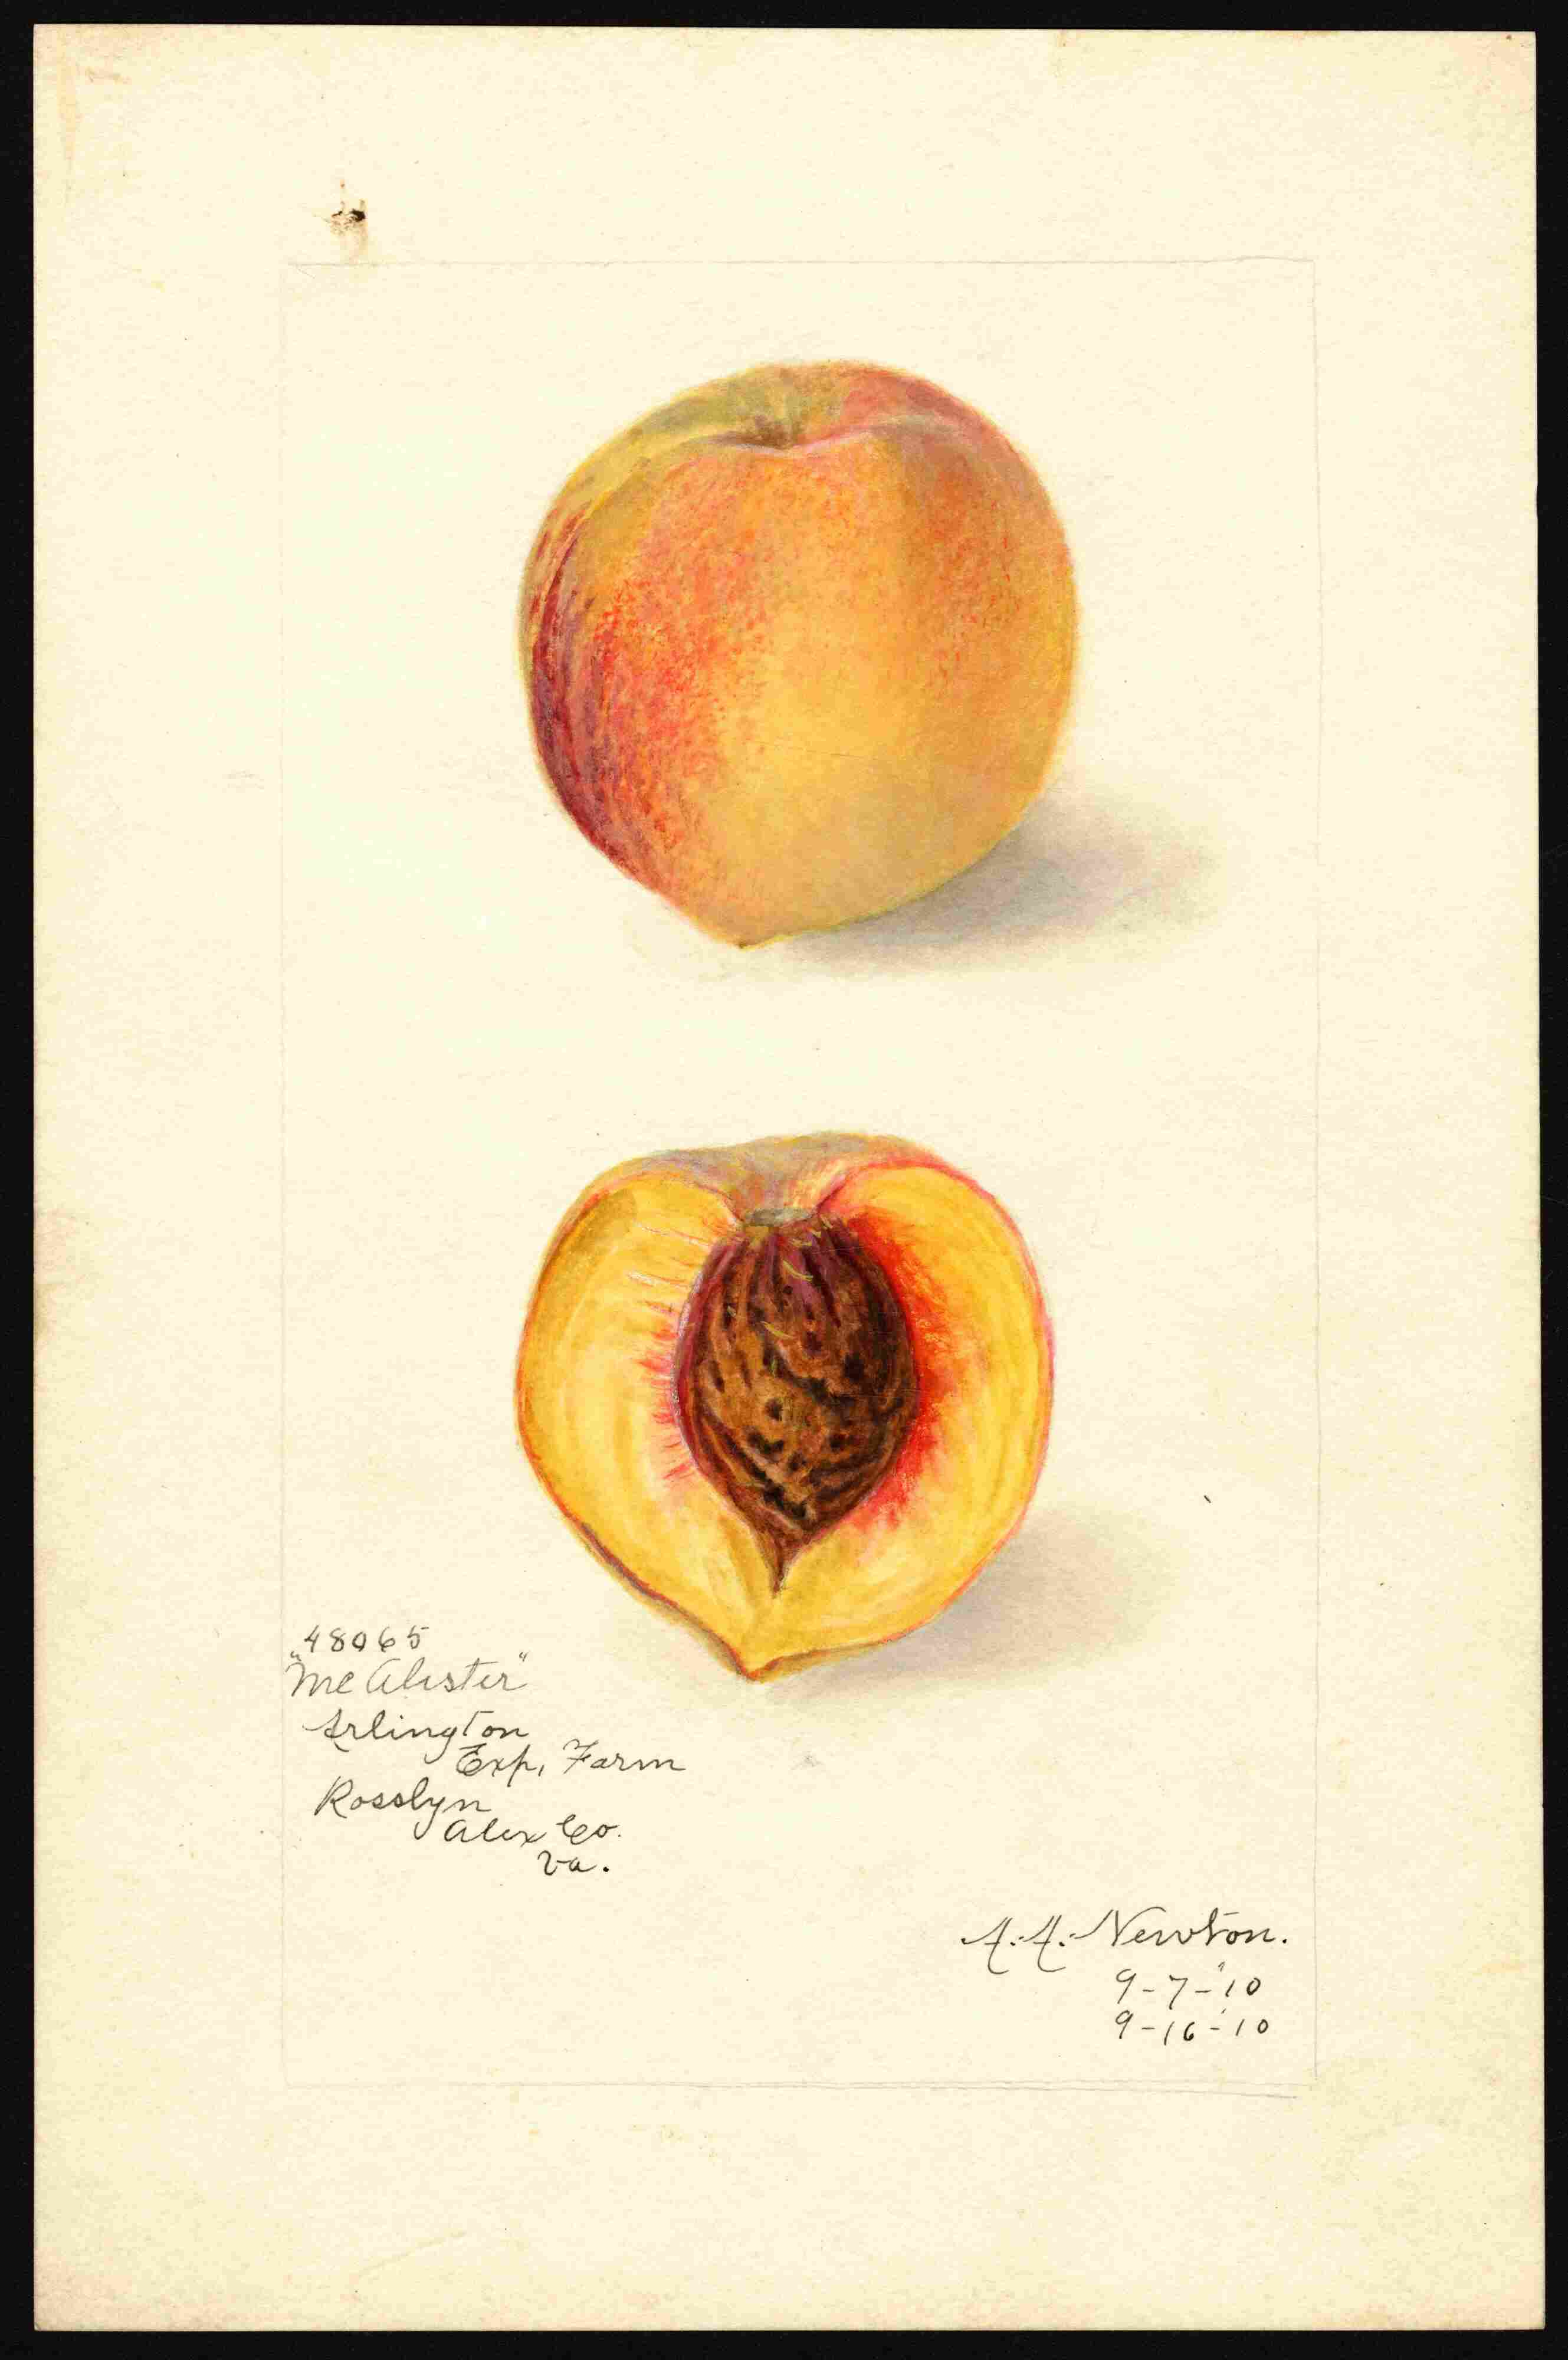 48065
"McAlister"
Arlington
Exp. Farm
Rosslyn
Alex Co.
Va.
A. A. Newton.
9-7-'10
9-16-'10